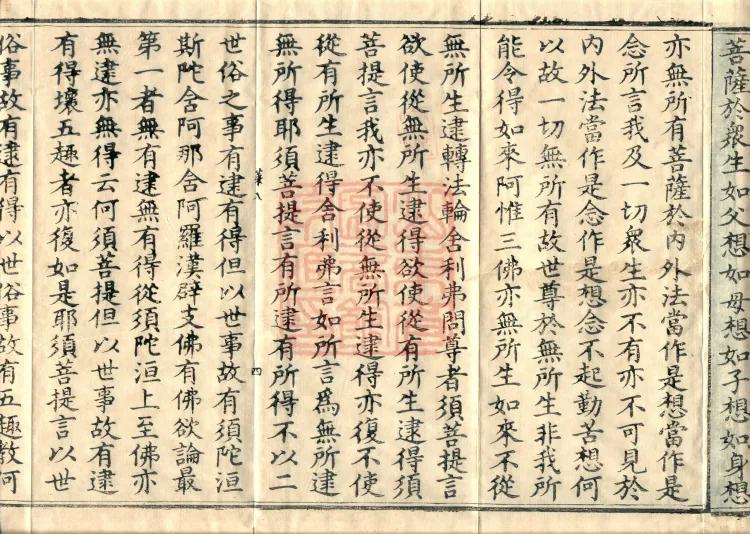 菩薩於眾生如父想如母想如子想如身想
亦無所有菩薩於內外法當作是想當作是
念所言我及一切眾生亦不有亦不可見於
內外法當作是念作是想念不起勤苦想何
以故一切無所有故世尊於無所生非我所
能令得如來阿惟三佛亦無所生如來不從
無所生逮轉法輪舍利弗問尊者須菩提言
欲使從無所生逮得欲使從有所生逮得須
菩提言我亦不使從無所生逮得亦復不使
從有所生逮得舍利弗言如所言為無所逮
無所得耶須菩提言有所逮有所得不以二
葉八
四
世俗之事有逮有得但以世事故有須陀洹
斯陀含阿那含阿羅漢辟支佛有佛欲論最
第一者無有逮無有得從須陀洹上至佛亦
無逮亦無得云何須菩提但以世事故有逮
有得壞五趣者亦復如是耶須菩提言以世
俗事故有逮有得以世俗事故有五趣教何